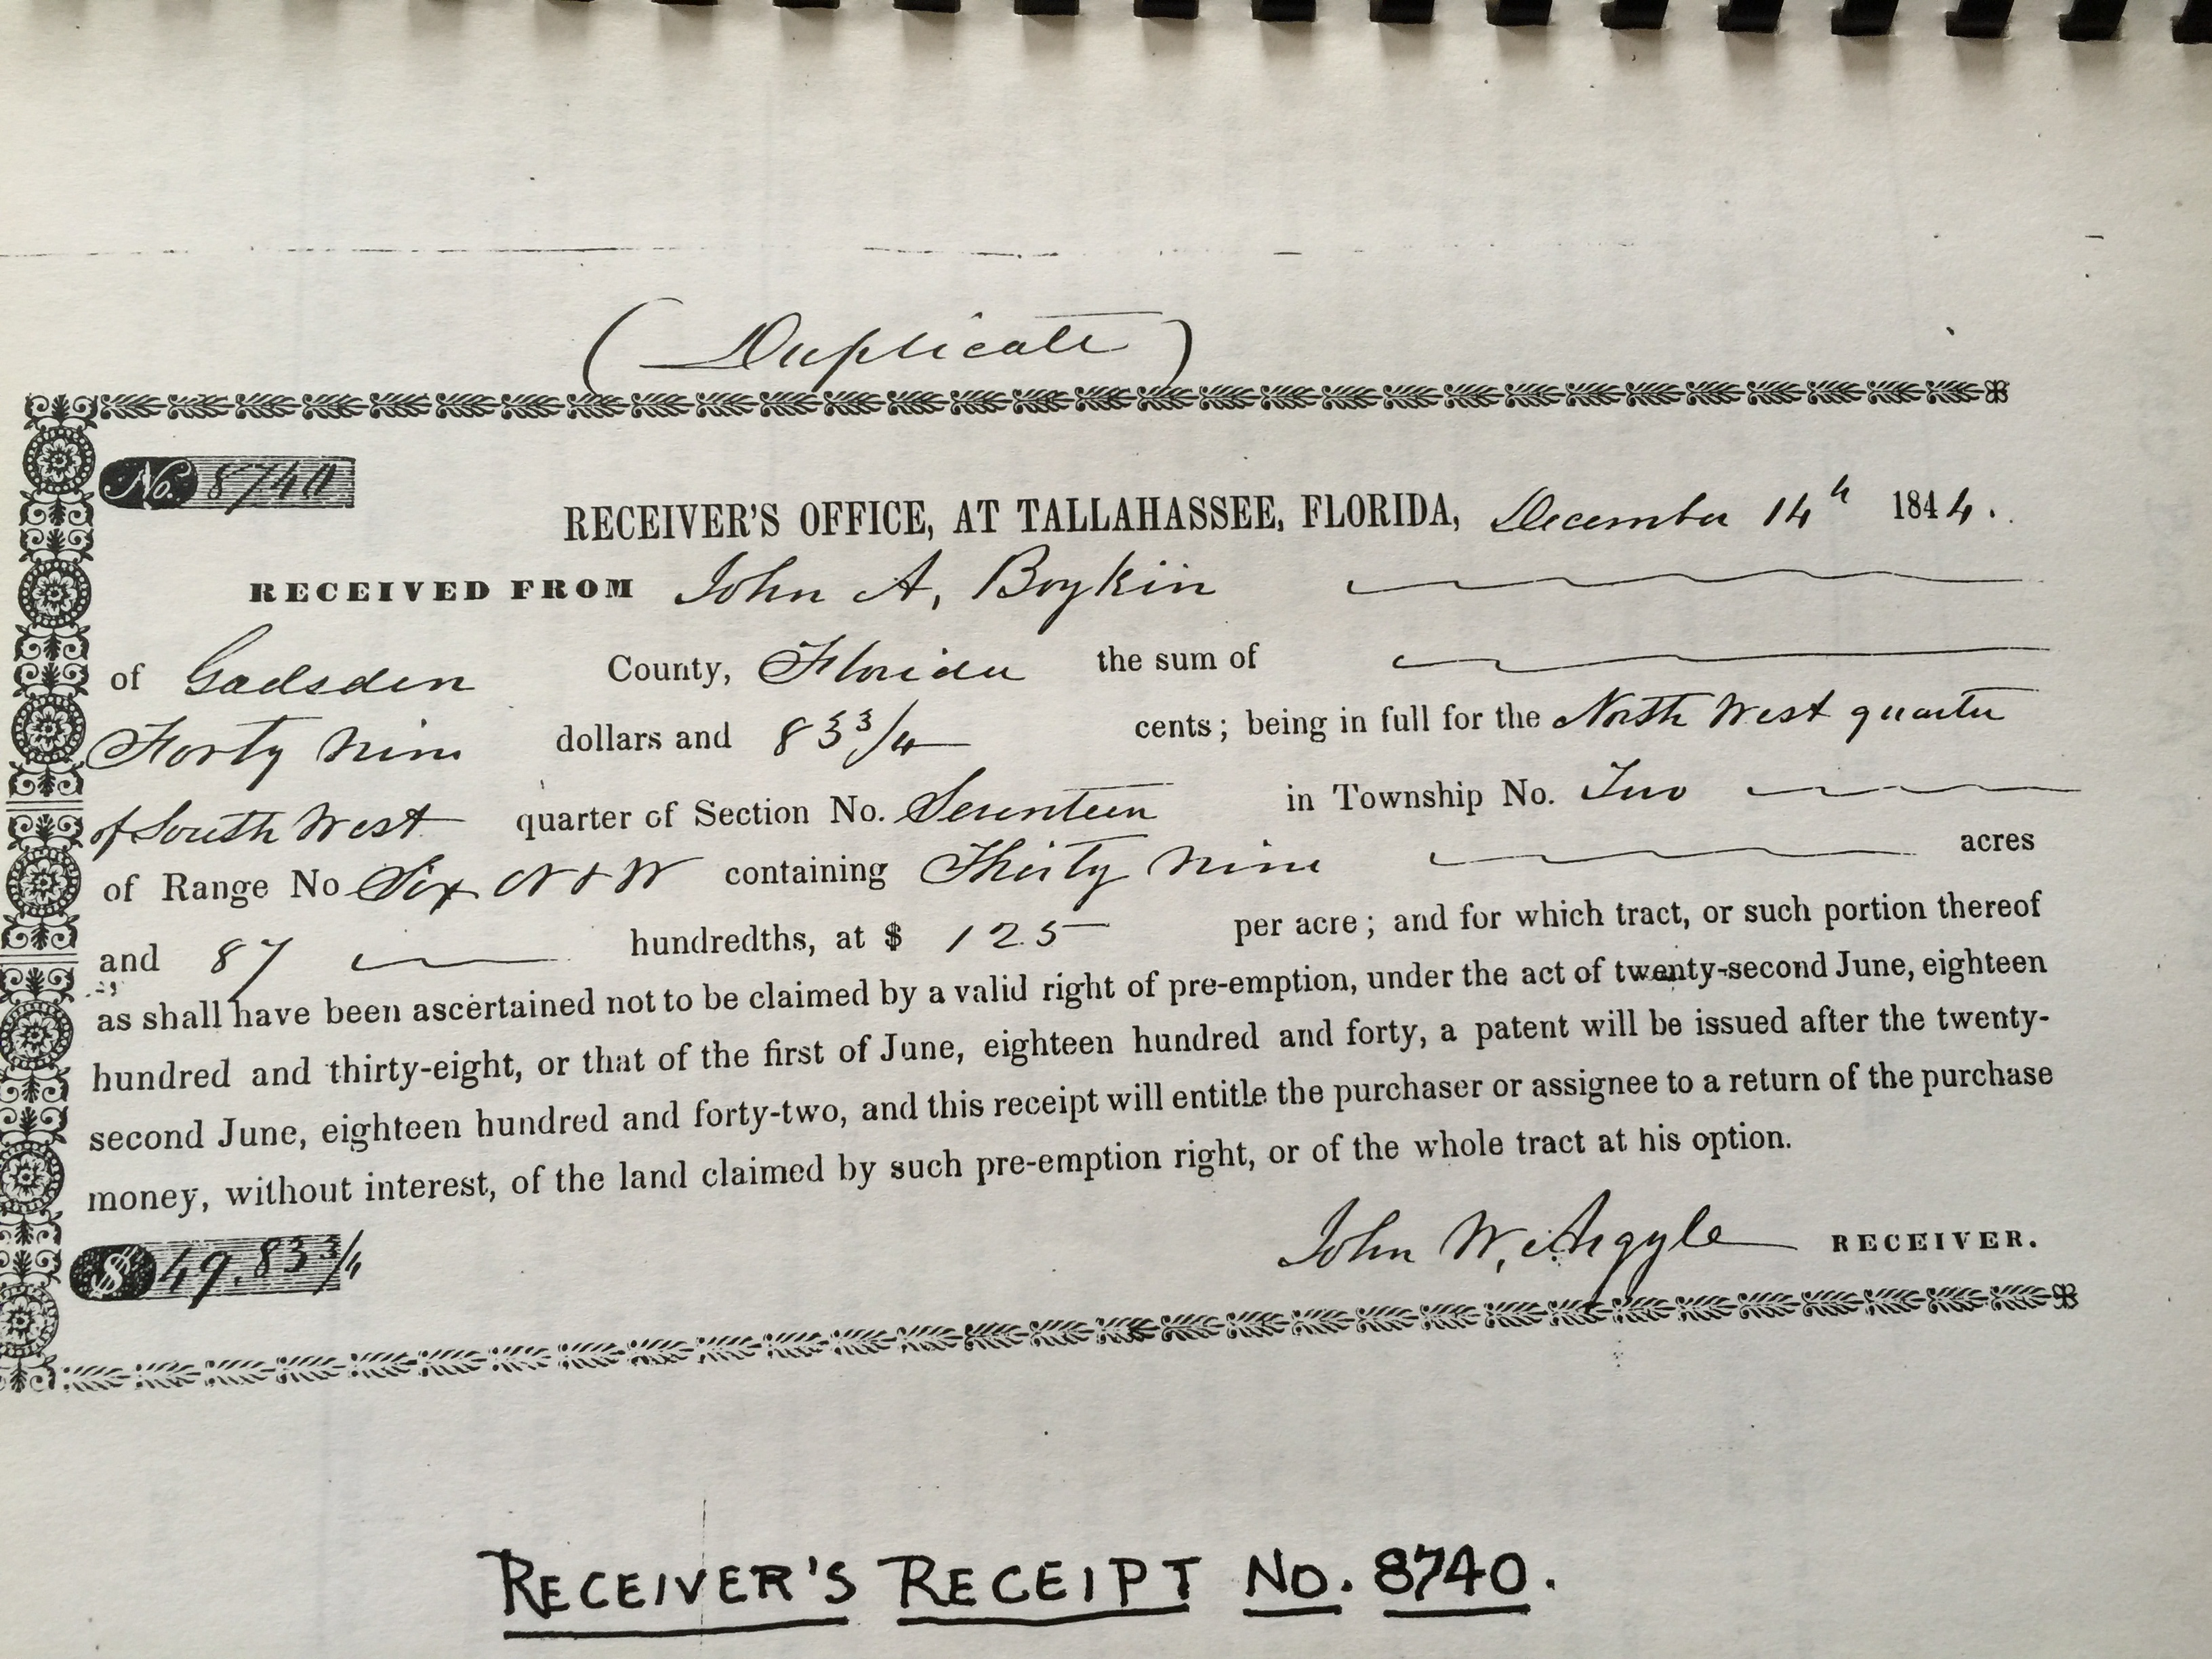 (Duplicate)
No. 8740
RECEIVER'S OFFICE, AT TALLAHASSEE, FLORIDA, December 14h 1844.
RECEIVED FROM John A, Boykin
of Gadsden County, Florida the sum of
Forty Nine dollars and 83 3/4 cents; being in full for the North West quarter
of South West quarter of Section No. Seventeen in Township No. Two
of Range No Six N & W containing Thirty Nine acres
and 87 hundredths, at $ 1 25 per acre; and for which tract, or such portion thereof
as shall have been ascertained not to be claimed by a valid right of pre-emption, under the act of twenty-second June, eighteen
hundred and thirty-eight, or that of the first of June, eighteen hundred and forty, a patent will be issued after the twenty-
second June, eighteen hundred and forty-two, and this receipt will entitle the purchaser or assignee to a return of the purchase
money, without interest, of the land claimed by such pre-emption right, or of the whole tract at his option.
$ 49.83 3/4 John W, Argyle RECEIVER.
RECEIVER'S RECEIPT NO. 8740.